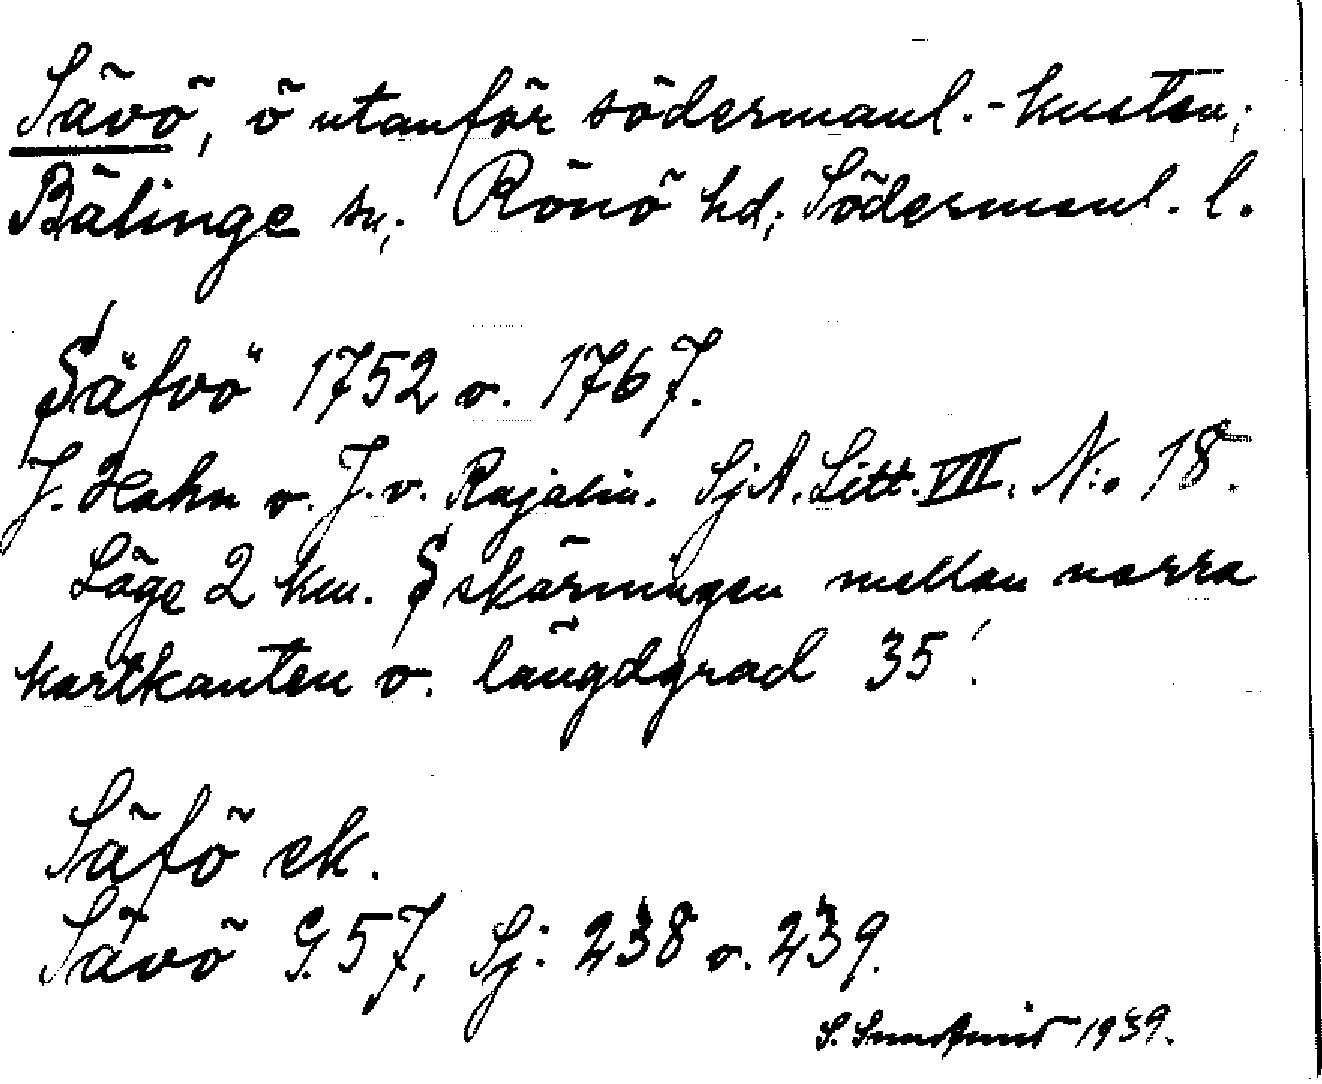 Sävö, ö utanför södermanl.-kusten;
Bälinge sn; Rönö hd; Södermanl. l.
Säfvö 1752 o. 1767.
J. Hahn o. J. v. Rajalin. SjA. Litt. VIII. N:o 18.
Läge 2 km. S skärningen mellan norra
kartkanten o. längdgrad 35'.
Säfö ek.
Sävö G.57, Sj: 238 o. 239.
S. 1939.